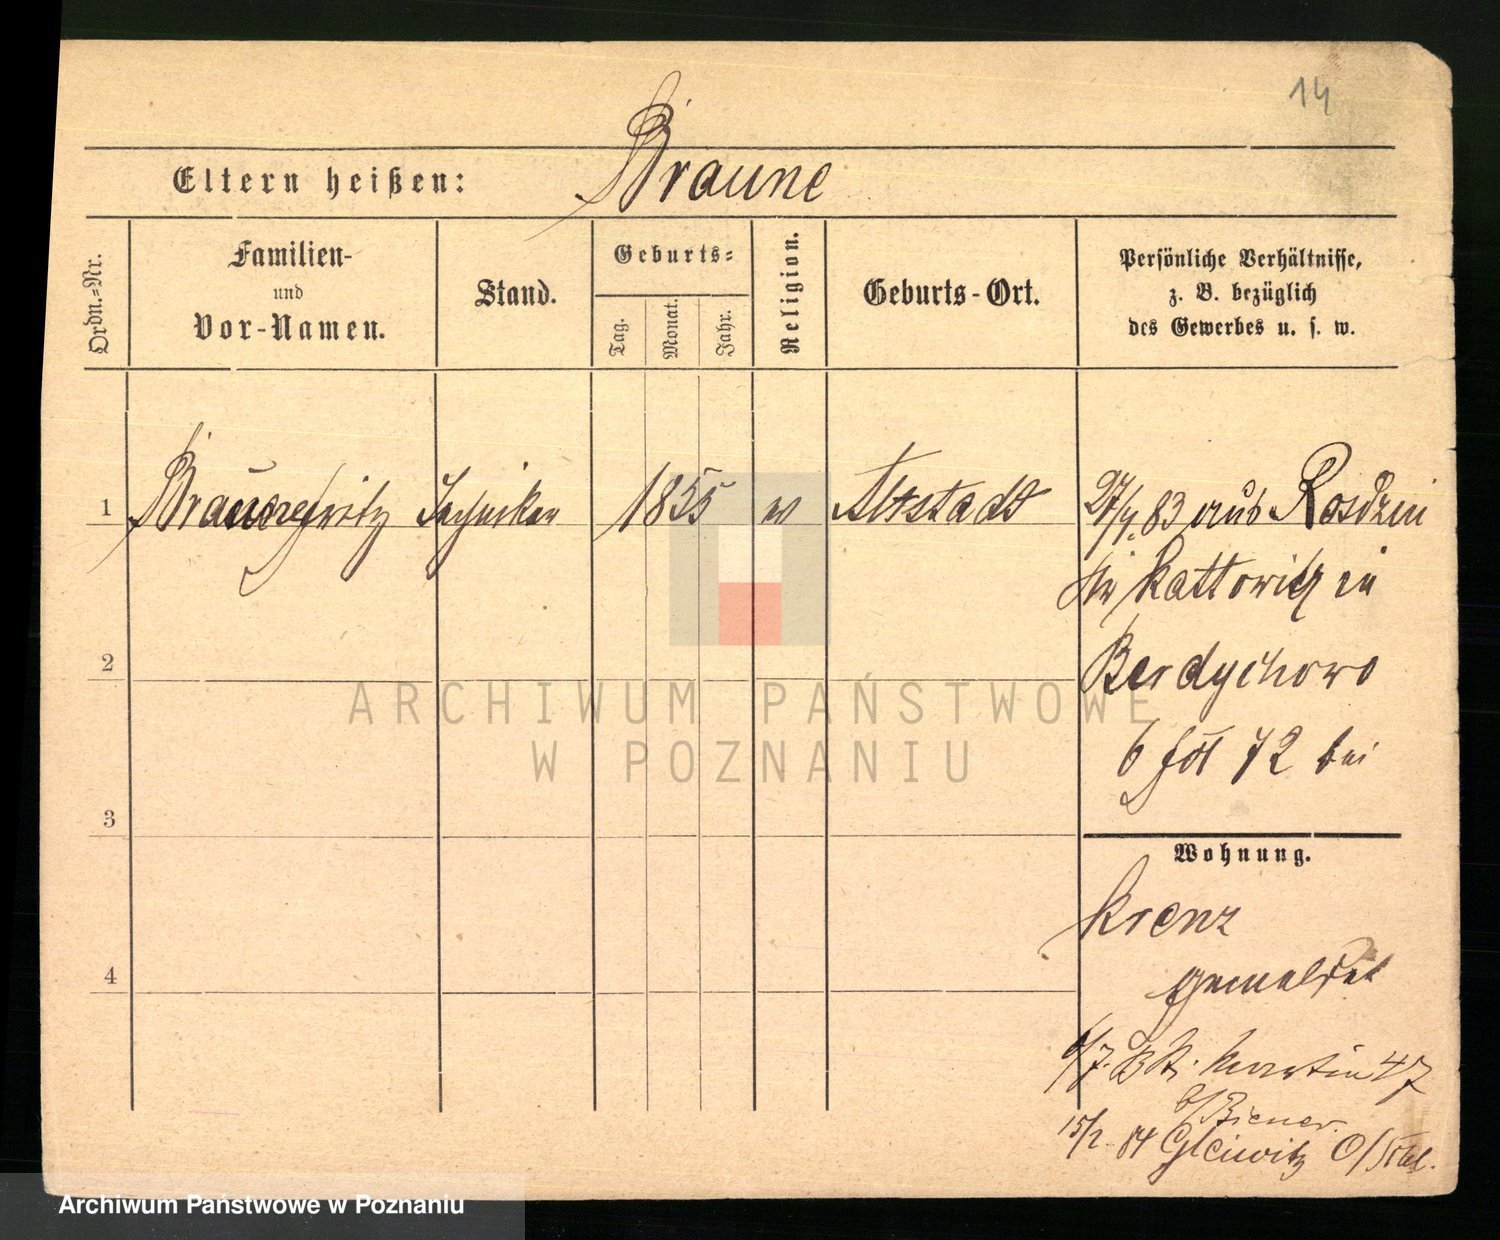 14
Eltern heißen: Braune
Ordn.-Nr.
Familien-
und
Vor-Namen.
Stand.
Geburts-
Tag.
Monat.
Jahr.
Religion.
Geburts-Ort.
Persönliche Verhältnisse,
z. B. bezüglich
des Gewerbes u. s. w.
1 Braune Fritz Techniker 1855 Altstadt 83 aus Rosdzin
Kattowitz in
Berdychowo
6 72 bei
2
3
4
Wohnung.
Krenz
gemeldet
6/7. St. Martin 47
b/ Biener.
15/2. 84 Gleiwitz O/Schl.
ARCHIWUM PAŃSTWOWE
W POZNANIU
Archiwum Państwowe w Poznaniu